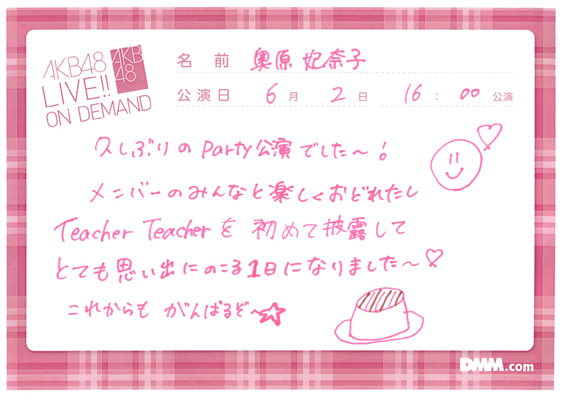 AKB48
LIVE!!
ON DEMAND
AKB
48
名前 奥原 妃奈子
公演日 6月 2日 16:00公演
久しぶりのparty公演でした〜!
メンバーのみんなと楽しくおどれたし
Teacher Teacherを 初めて披露して
とても思い出にのこる1日になりました〜♡
これからも がんばるぞ〜☆
DMM.com